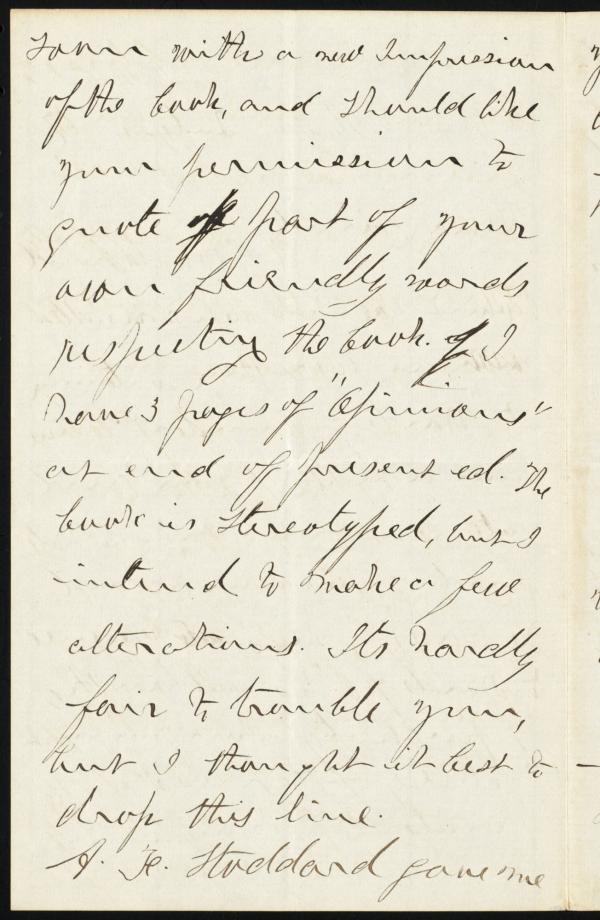 soon with a new impression
of the book, and should like
your permission to
quote part of your
own friendly words
respecting the book. I
have 3 pages of "Opinions"
at end of present ed. The
book is stereotyped, but I
intend to make a few
alterations. Its hardly
fair to trouble you,
but I thought it best to
drop this line.
A. Stoddard gave me